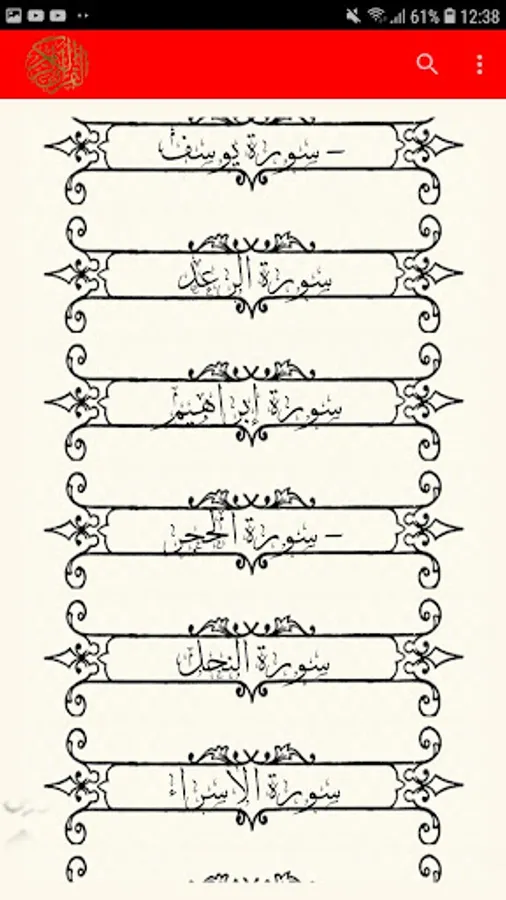 61% 12:38
– سورة يوسف
سورة الرعد
سورة إبراهيم
– سورة الحجر
سورة النحل
سورة الإسراء